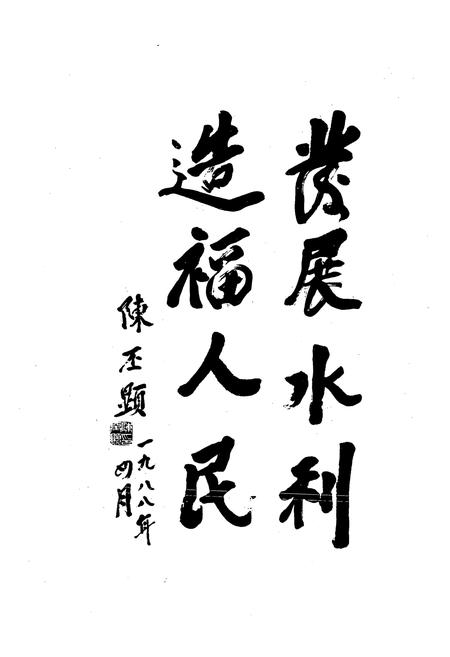 發展水利
造福人民
陳丕顯
一九八八年
四月